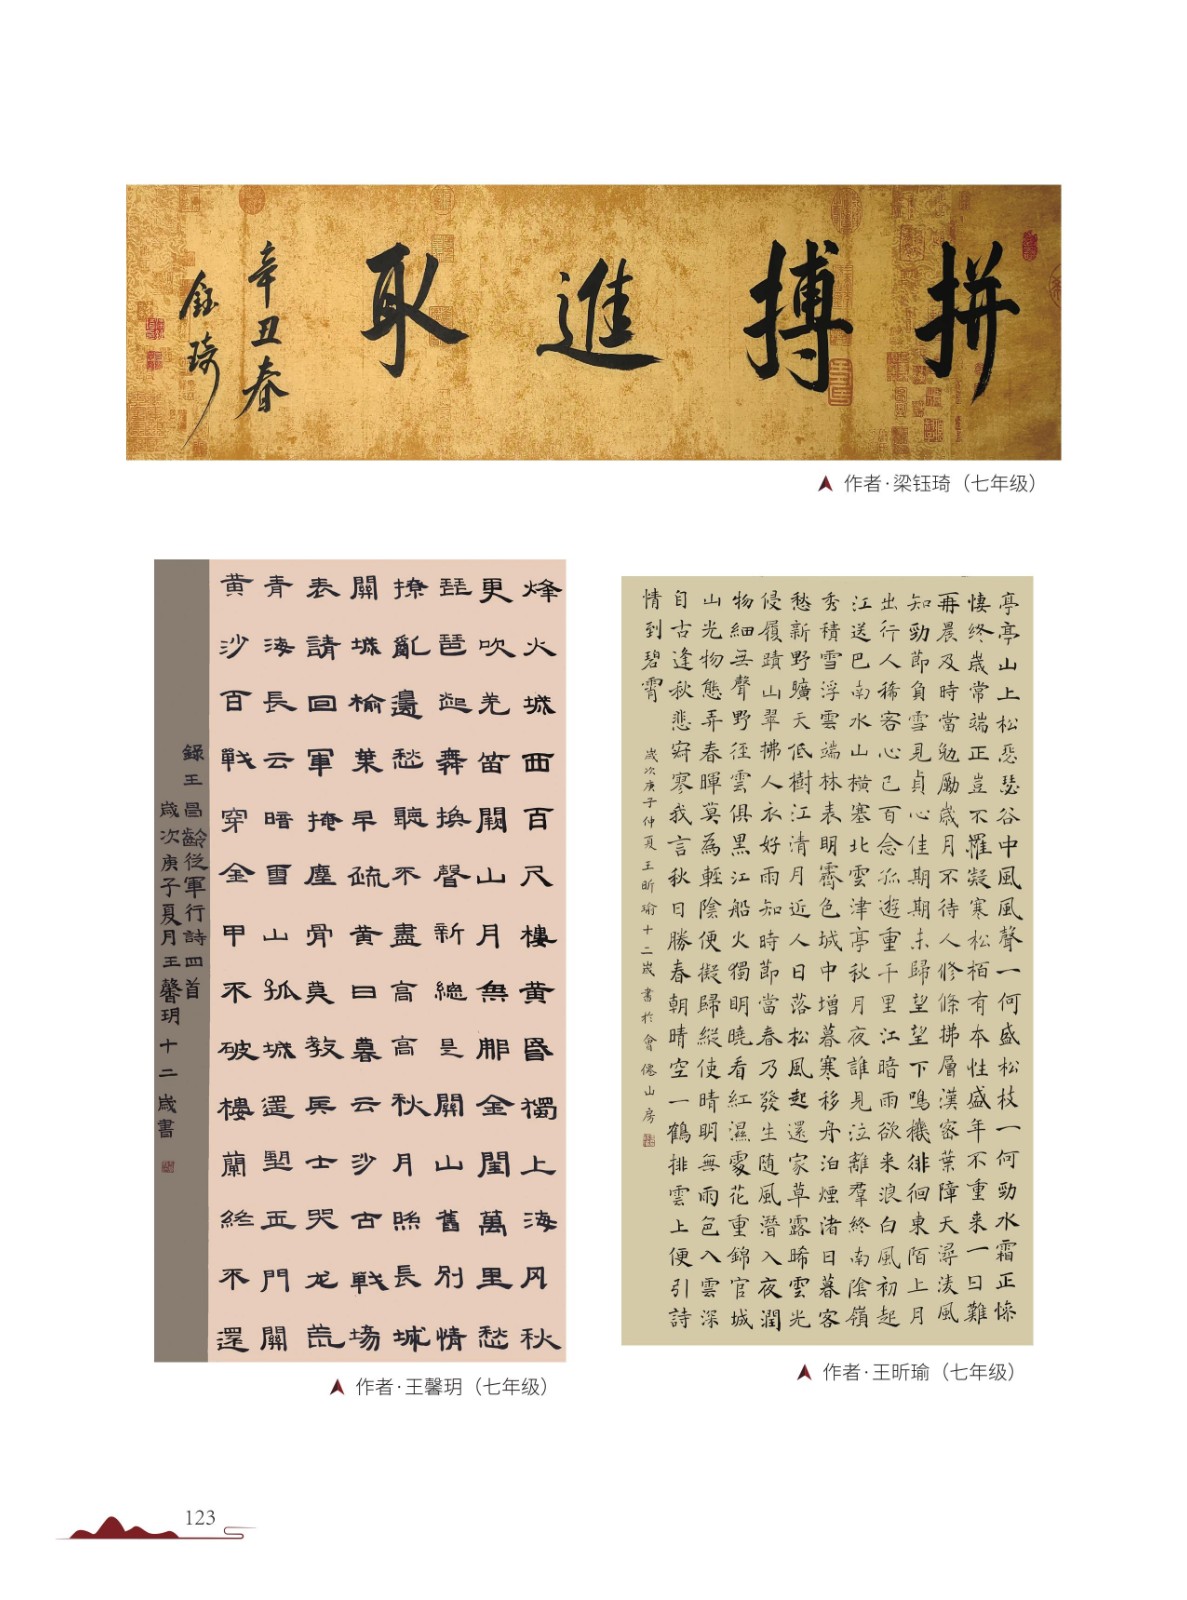 拼搏進取
辛丑春
鈺琦
作者·梁钰琦（七年级）
烽火城西百尺樓黃昏獨上海风秋
更吹羌笛關山月無那金閨萬里愁
琵琶起舞換聲新總是關山舊別情
撩亂邊愁聽不盡高高秋月照長城
關城榆葉早疏黃日暮云沙古戰場
表請回軍掩塵骨莫教兵士哭龙荒
青海長云暗雪山孤城遥望玉門關
黃沙百戰穿金甲不破樓蘭終不還
錄王昌齡從軍行詩四首
歲次庚子夏月王馨玥十二歲書
作者·王馨玥（七年级）
亭亭山上松瑟瑟谷中風風聲一何盛松枝一何勁水霜正慘
悽終歲常端正豈不罹凝寒松栢有本性盛年不重来一日難
再晨及時當勉勵歲月不待人修條拂層漢密葉障天潯凌風
知勁節負雪見貞心佳期期未歸望望下鳴機徘徊東陌上月
出行人稀客心已百念孤遊重千里江暗雨欲来浪白風初起
江送巴南水山橫塞北雲津亭秋月夜誰見泣離羣終南陰嶺
秀積雪浮雲端林表明霽色城中增暮寒移舟泊煙渚日暮客
愁新野曠天低樹江清月近人日落松風起還家草露晞雲光
侵履蹟山翠拂人衣好雨知時節當春乃發生随風潛入夜潤
物細無聲野径雲俱黑江船火獨明曉看紅濕處花重錦官城
山光物態弄春暉莫為輕陰便擬歸縱使晴明無雨色入雲深
自古逢秋悲寂寥我言秋日勝春朝晴空一鶴排雲上便引詩
情到碧霄
歲次庚子仲夏王昕瑜十二歲書於會僊山房
作者·王昕瑜（七年级）
123